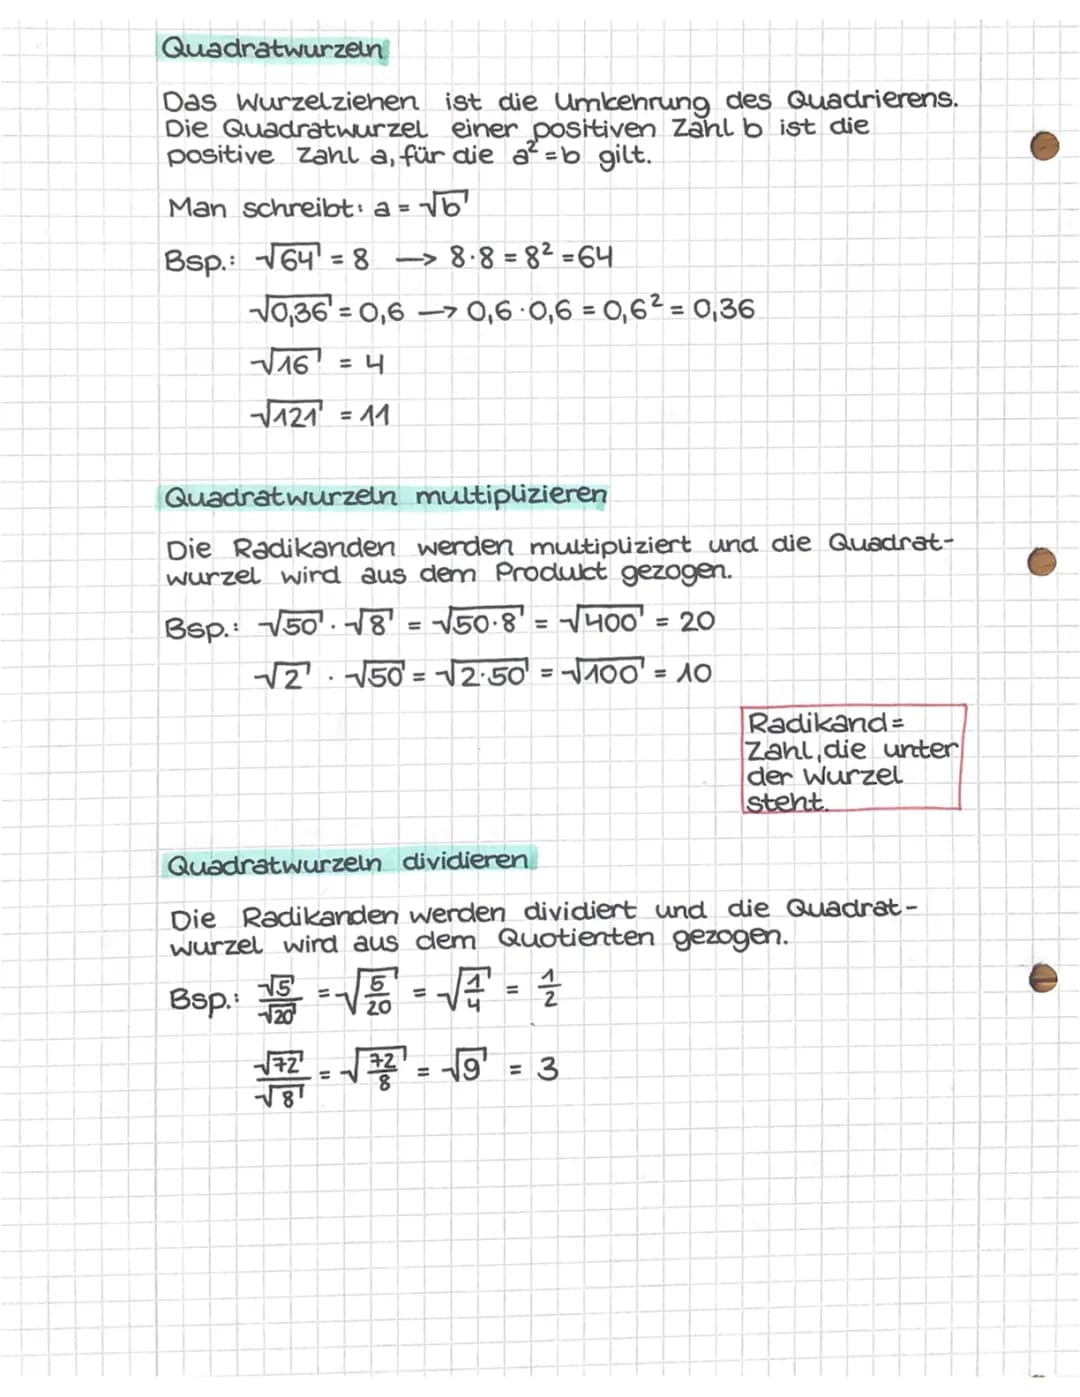 Quadratwurzeln
Das Wurzelziehen ist die Umkehrung des Quadrierens.
Die Quadratwurzel einer positiven Zahl b ist die
positive Zahl a, für die a² = b gilt.
Man schreibt: a = √b
Bsp.: √64 = 8 → 8·8 = 8² = 64
√0,36 = 0,6 → 0,6·0,6 = 0,6² = 0,36
√16 = 4
√121 = 11
Quadratwurzeln multiplizieren
Die Radikanden werden multipliziert und die Quadrat-
wurzel wird aus dem Produkt gezogen.
Bsp.: √50 · √8 = √50·8 = √400 = 20
√2 · √50 = √2·50 = √100 = 10
Radikand =
Zahl, die unter
der Wurzel
steht.
Quadratwurzeln dividieren
Die Radikanden werden dividiert und die Quadrat-
wurzel wird aus dem Quotienten gezogen.
Bsp.: √5/√20 = √5/20 = √1/4 = 1/2
√72/√8 = √72/8 = √9 = 3